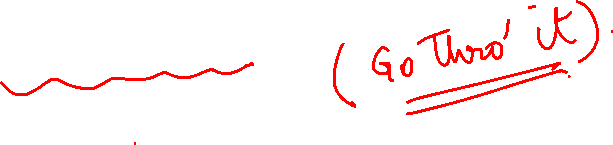 (Go Thro' it).